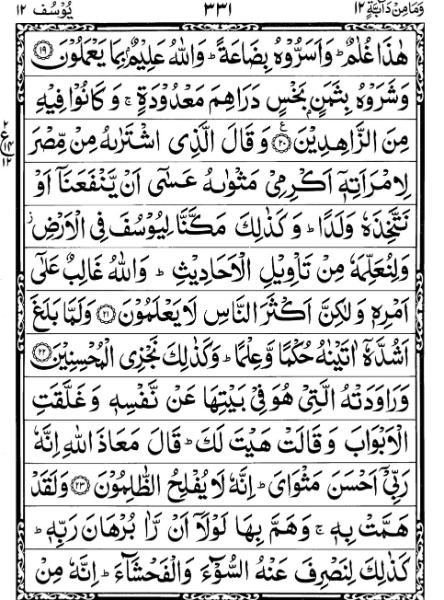 وَمَا مِنْ دَآبَّةٍ ١٢ ٣٣١ يُوْسُف ١٢
هٰذَا غُلٰمٌ ؕ وَاَسَرُّوْهُ بِضَاعَةً ؕ وَاللّٰهُ عَلِيْمٌۢ بِمَا يَعْمَلُوْنَ ﴿۱۹﴾
وَشَرَوْهُ بِثَمَنٍۭ بَخْسٍ دَرَاهِمَ مَعْدُوْدَةٍ ۚ وَكَانُوْا فِيْهِ
مِنَ الزَّاهِدِيْنَ ﴿۲۰﴾ ع وَقَالَ الَّذِى اشْتَرٰىهُ مِنْ مِّصْرَ
لِامْرَاَتِهٖۤ اَكْرِمِىْ مَثْوٰىهُ عَسٰٓى اَنْ يَّنْفَعَنَاۤ اَوْ
نَتَّخِذَهٗ وَلَدًا ؕ وَكَذٰلِكَ مَكَّنَّا لِيُوْسُفَ فِى الْاَرْضِ ز
وَلِنُعَلِّمَهٗ مِنْ تَاْوِيْلِ الْاَحَادِيْثِ ؕ وَاللّٰهُ غَالِبٌ عَلٰٓى
اَمْرِهٖ وَلٰكِنَّ اَكْثَرَ النَّاسِ لَا يَعْلَمُوْنَ ﴿۲۱﴾ وَلَمَّا بَلَغَ
اَشُدَّهٗۤ اٰتَيْنٰهُ حُكْمًا وَّعِلْمًا ؕ وَكَذٰلِكَ نَجْزِى الْمُحْسِنِيْنَ ﴿۲۲﴾
وَرَاوَدَتْهُ الَّتِىْ هُوَ فِىْ بَيْتِهَا عَنْ نَّفْسِهٖ وَغَلَّقَتِ
الْاَبْوَابَ وَقَالَتْ هَيْتَ لَكَ ؕ قَالَ مَعَاذَ اللّٰهِ اِنَّهٗ
رَبِّىْۤ اَحْسَنَ مَثْوَاىَ ؕ اِنَّهٗ لَا يُفْلِحُ الظّٰلِمُوْنَ ﴿۲۳﴾ وَلَقَدْ
هَمَّتْ بِهٖ ۚ وَهَمَّ بِهَا لَوْلَاۤ اَنْ رَّاٰ بُرْهَانَ رَبِّهٖ ؕ
كَذٰلِكَ لِنَصْرِفَ عَنْهُ السُّوْٓءَ وَالْفَحْشَآءَ ؕ اِنَّهٗ مِنْ
٢
ع
١٤
١٢